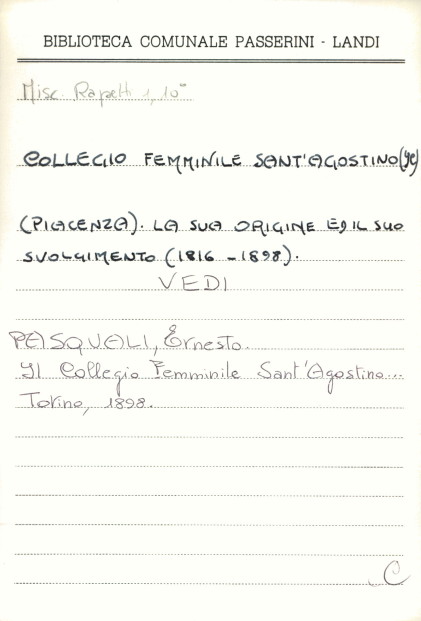 BIBLIOTECA COMUNALE PASSERINI - LANDI
Misc. Rapetti 1, 10°
COLLEGIO FEMMINILE SANT'AGOSTINO (Il)
(PIACENZA). LA SUA ORIGINE ED IL SUO
SVOLGIMENTO (1816 - 1898).
VEDI
PASQUALI, Ernesto.
Il Collegio Femminile Sant'Agostino...
Torino, 1898.
C